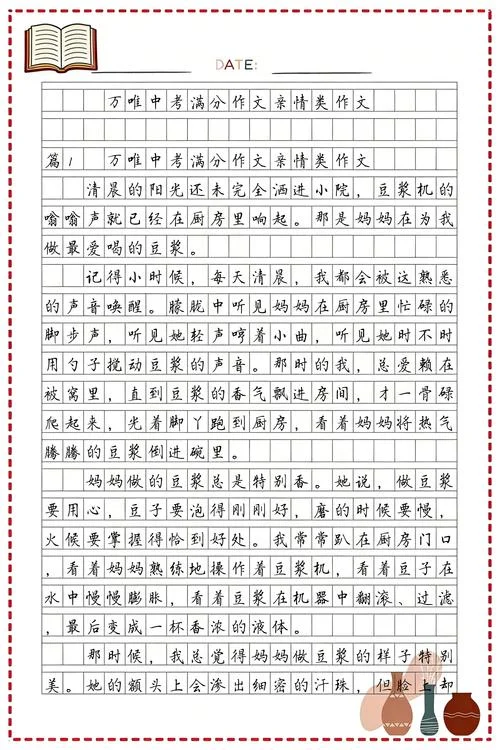 DATE:
万唯中考满分作文亲情类作文
篇1 万唯中考满分作文亲情类作文
清晨的阳光还未完全洒进小院，豆浆机的
嗡嗡声就已经在厨房里响起。那是妈妈在为我
做最爱喝的豆浆。
记得小时候，每天清晨，我都会被这熟悉
的声音唤醒。朦胧中听见妈妈在厨房里忙碌的
脚步声，听见她轻声哼着小曲，听见她时不时
用勺子搅动豆浆的声音。那时的我，总爱赖在
被窝里，直到豆浆的香气飘进房间，才一骨碌
爬起来，光着脚丫跑到厨房，看着妈妈将热气
腾腾的豆浆倒进碗里。
妈妈做的豆浆总是特别香。她说，做豆浆
要用心，豆子要泡得刚刚好，磨的时候要慢，
火候要掌握得恰到好处。我常常趴在厨房门口
，看着妈妈熟练地操作着豆浆机，看着豆子在
水中慢慢膨胀，看着豆浆在机器中翻滚、过滤
，最后变成一杯香浓的液体。
那时候，我总觉得妈妈做豆浆的样子特别
美。她的额头上会渗出细密的汗珠，但脸上却